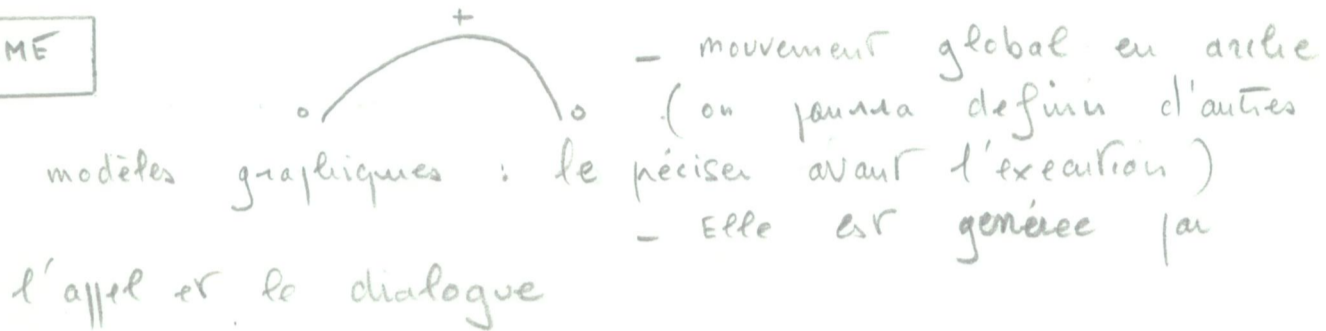 ME
+
- mouvement global en arche
o o (on pourra definir d'autres
modèles graphiques : le préciser avant l'execution)
- Elle est generée par
l'appel et le dialogue